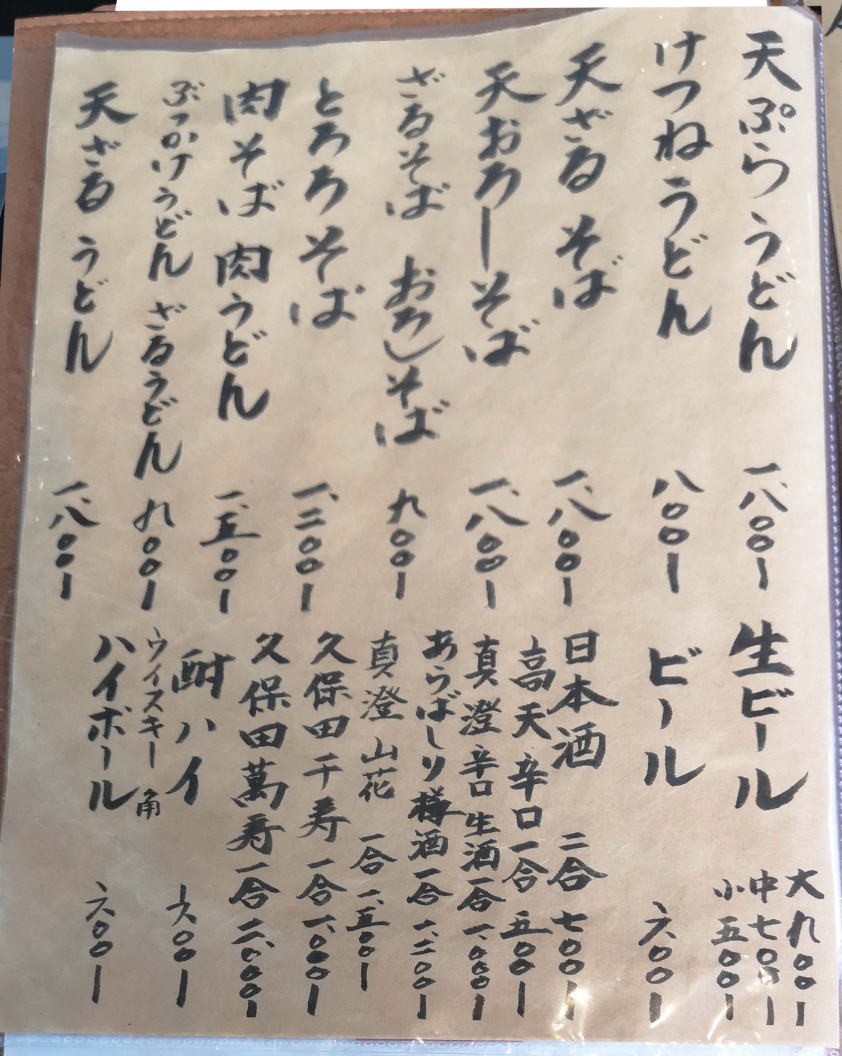 天ぷらうどん 一、八〇〇ー
けつねうどん 八〇〇ー
天ざるそば 一、八〇〇ー
天おろしそば 一、八〇〇ー
ざるそば おろしそば 九〇〇ー
とろろそば 一、二〇〇ー
肉そば 肉うどん 一、五〇〇ー
ぶっかけうどん ざるうどん 九〇〇ー
天ざるうどん 一、八〇〇ー
生ビール 大 九〇〇ー
中 七〇〇ー
小 五〇〇ー
ビール 六〇〇ー
日本酒 二合 七〇〇ー
高天 辛口 一合 五〇〇ー
真澄 辛口 生酒 一合 一、〇〇〇ー
あらばしり 樽酒 一合 一、二〇〇ー
真澄 山花 一合 一、五〇〇ー
久保田 千寿 一合 一、〇〇〇ー
久保田 萬寿 一合 二、〇〇〇ー
酎ハイ 六〇〇ー
ウイスキー 角
ハイボール 六〇〇ー